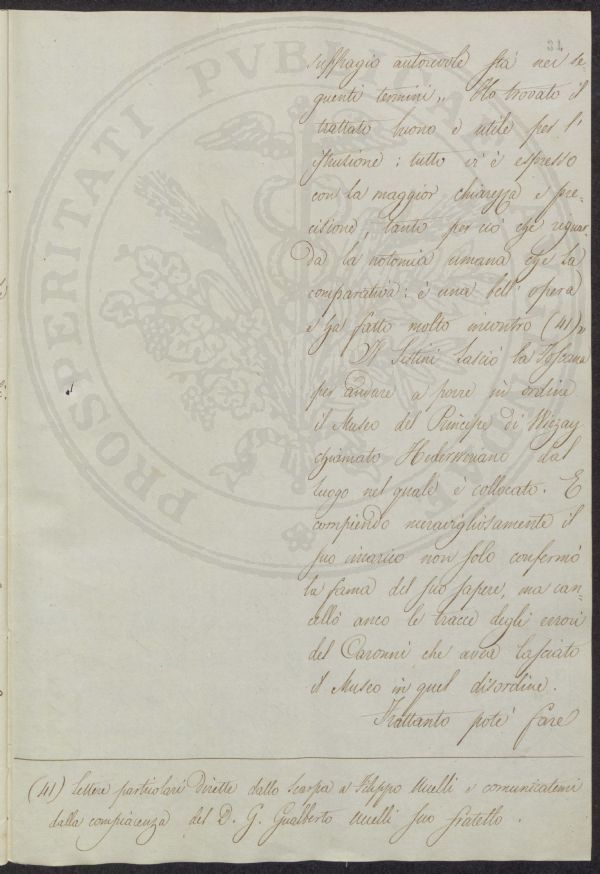 31
suffragio autorevole stà nei se
guenti termini „ Ho trovato il
trattato buono e utile per l'
istruzione: tutto vi è espresso
con la maggior chiarezza e pre=
cisione, tanto per ciò che riguar
da la notomia umana che la
comparativa: è una bell' opera
e ha fatto molto incontro (41)„
Il Sestini lasciò la Toscana
per andare a porre in ordine
il Museo del Principe di Wiczay
chiamato Hedervariano dal
luogo nel quale è collocato. E
compiendo meravigliosamente il
suo incarico non solo confermò
la fama del suo sapere, ma can=
cellò anco le tracce degli errori
del Caronni che avea lasciato
il Museo in quel disordine.
Frattanto potè fare
(41) Lettere particolari dirette dallo Scarpa a Filippo Uccelli e comunicatemi
dalla compiacenza del D. G. Gualberto Uccelli suo fratello.
PROSPERITATI PUBLICAE